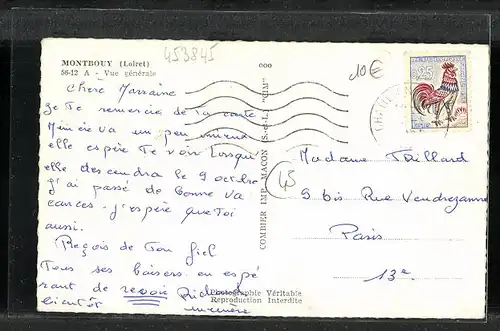 MONTBOUY (Loiret)
56-12 A - Vue générale
453845
000
10€
0,25
Chère Marraine
Je Te remercie de Ta carte
Mémère va un peu mieux
elle espère Te voir lorsque
elle descendra le 9 octobre
j'ai passé de bonne va
cances. j'espère que Toi
aussi.
Reçois de Ton fiel
Tous ses baisers en espé
rant de revoir
bientôt mémère
COMBIER IMP. MACON (S.-et-L.) "CIM"
45
Madame Taillard
5 bis Rue Vendrezanne
Paris
13e
Photographie Véritable
Reproduction Interdite